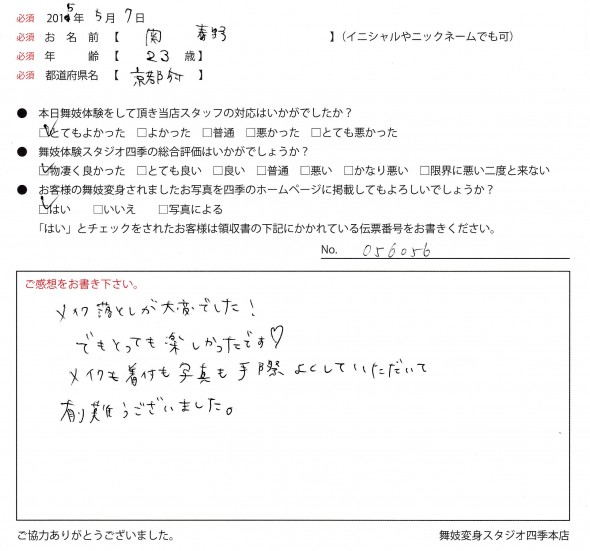 必須 2015年 5月 7日
必須 お 名 前【 関 春野 】(イニシャルやニックネームでも可)
必須 年 齢【 23 歳】
必須 都道府県名【 京都府 】
● 本日舞妓体験をして頂き当店スタッフの対応はいかがでしたか?
□とてもよかった □よかった □普通 □悪かった □とても悪かった
● 舞妓体験スタジオ四季の総合評価はいかがでしょうか?
□物凄く良かった □とても良い □良い □普通 □悪い □かなり悪い □限界に悪い二度と来ない
● お客様の舞妓変身されましたお写真を四季のホームページに掲載してもよろしいでしょうか?
□はい □いいえ □写真による
「はい」とチェックをされたお客様は領収書の下記にかかれている伝票番号をお書きください。
No. 056056
ご感想をお書き下さい。
メイク落としが大変でした!
でもとっても楽しかったです♡
メイクも着付も写真も手際よくしていただいて
有難うございました。
ご協力ありがとうございました。
舞妓変身スタジオ四季本店